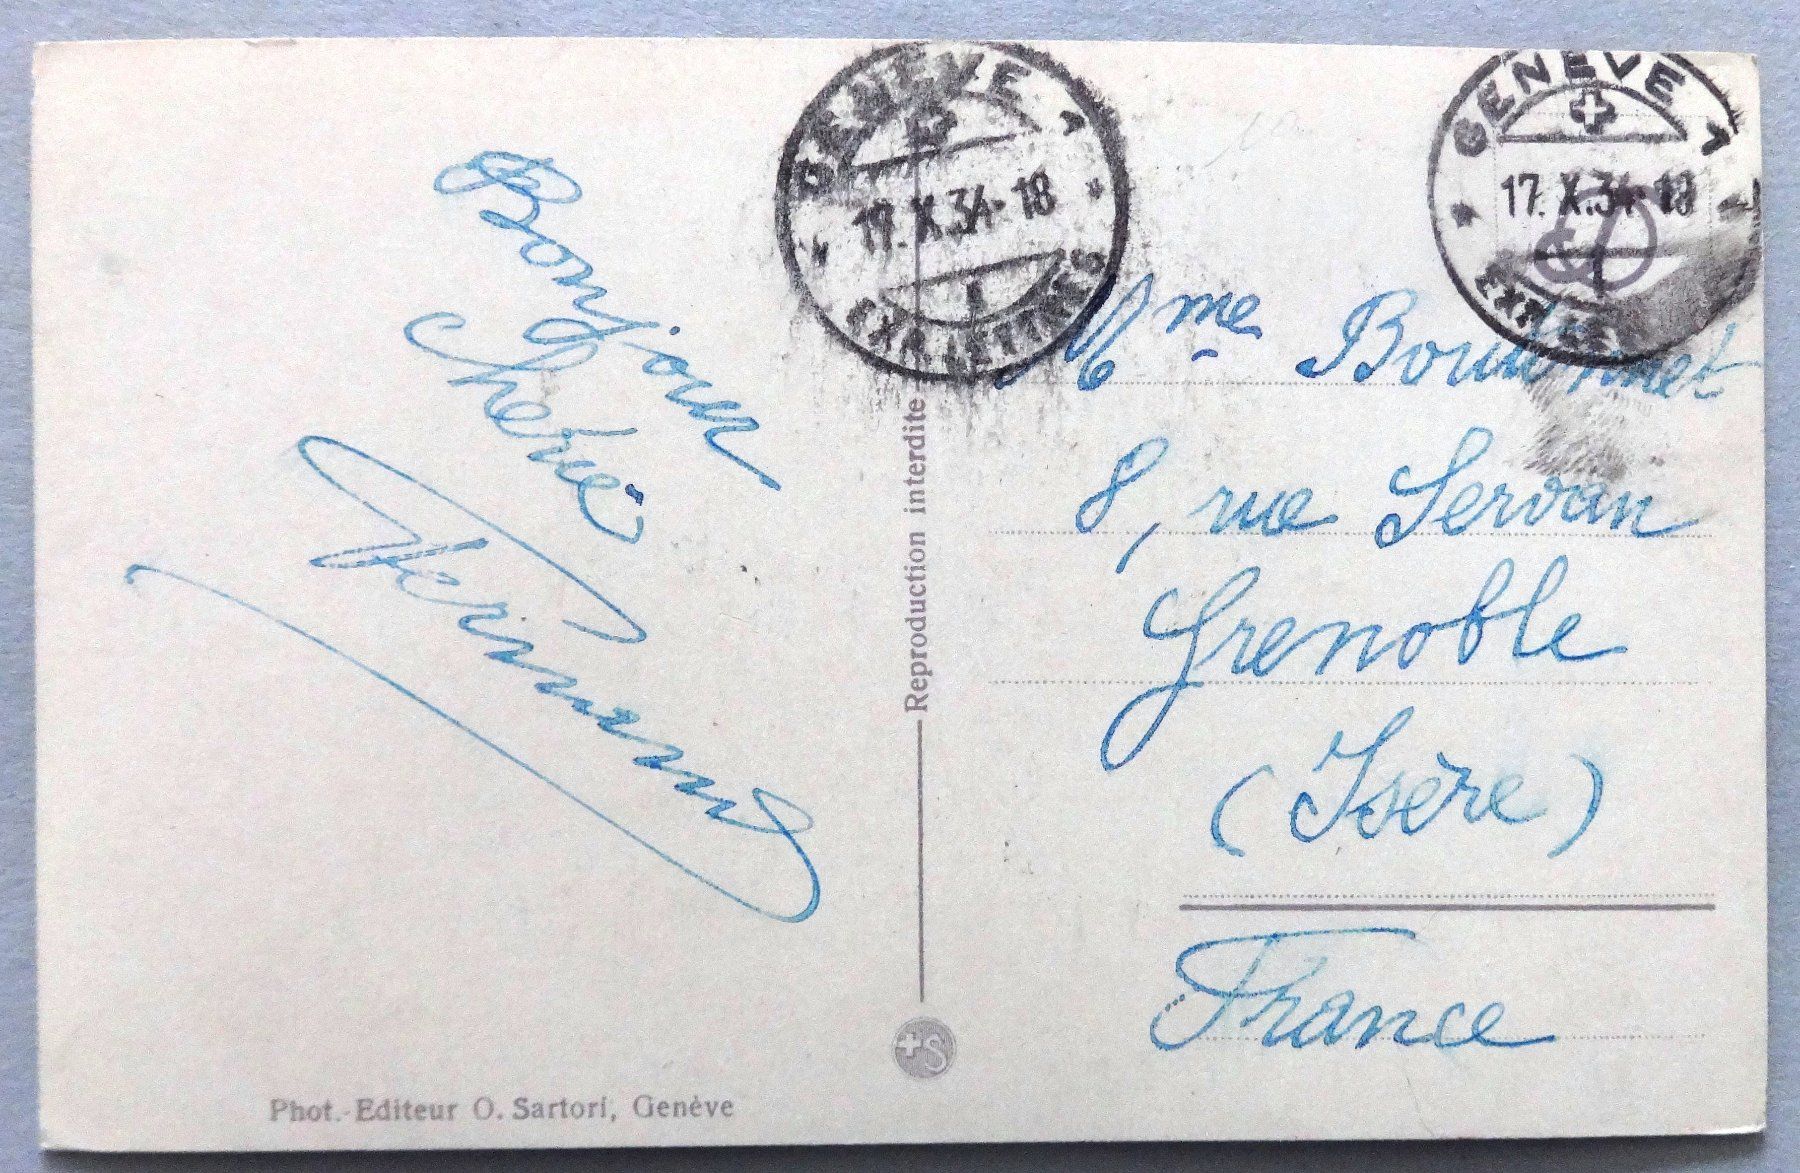 Bonjour
Chérie
GENÈVE 1
17.X.34-18
EXP. LETTRES
GENÈVE 1
17.X.34-18
Mme
8, rue Servan
Grenoble
(Isère)
France
Reproduction interdite
S
Phot.-Editeur O. Sartori, Genève